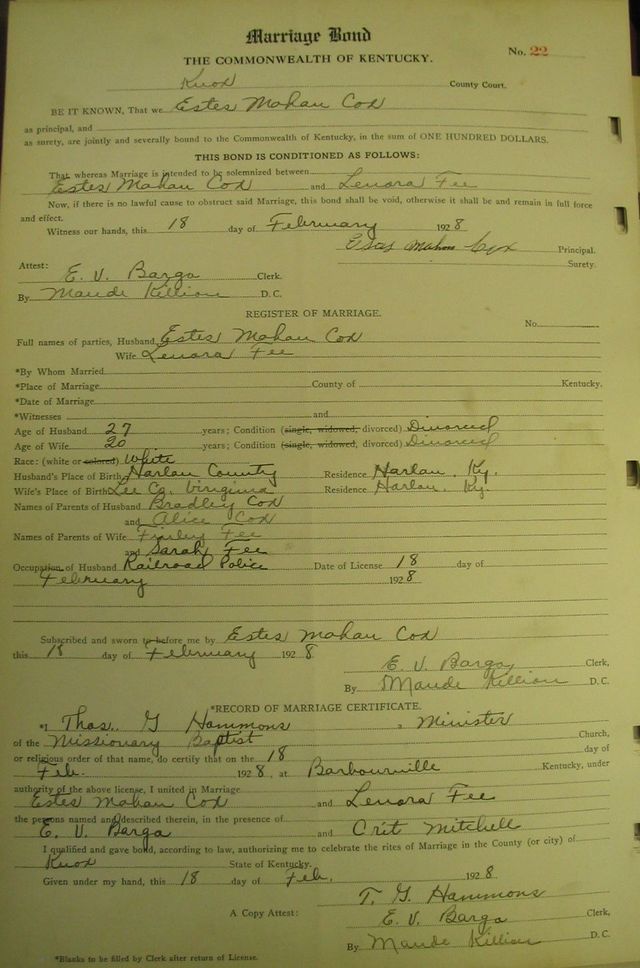 Marriage Bond
No. 22
THE COMMONWEALTH OF KENTUCKY.
Knox County Court.
BE IT KNOWN, That we Estes Mahan Cox
as principal, and
as surety, are jointly and severally bound to the Commonwealth of Kentucky, in the sum of ONE HUNDRED DOLLARS.
THIS BOND IS CONDITIONED AS FOLLOWS:
That whereas Marriage is intended to be solemnized between
Estes Mahan Cox and Lenora Fee
Now, if there is no lawful cause to obstruct said Marriage, this bond shall be void, otherwise it shall be and remain in full force
and effect.
Witness our hands, this 18 day of February 1928
Estes Mahan Cox Principal.
Surety.
Attest:
E. V. Barga Clerk.
By Maude Killion D. C.
REGISTER OF MARRIAGE.
No.
Full names of parties, Husband, Estes Mahan Cox
Wife Lenora Fee
*By Whom Married
*Place of Marriage County of Kentucky.
*Date of Marriage
*Witnesses and
Age of Husband 27 years; Condition (single, widowed, divorced) Divorced
Age of Wife 20 years; Condition (single, widowed, divorced) Divorced
Race: (white or colored) White
Husband's Place of Birth Harlan County Residence Harlan, Ky.
Wife's Place of Birth Lee Co. Virginia Residence Harlan, Ky.
Names of Parents of Husband Bradley Cox
and Alice Cox
Names of Parents of Wife Fee
and Sarah Fee
Occupation of Husband Railroad Police Date of License 18 day of
February 1928
Subscribed and sworn to before me by Estes Mahan Cox
this 18 day of February 1928
E. V. Barga Clerk,
By Maude Killion D. C.
*RECORD OF MARRIAGE CERTIFICATE.
*I Thos. G Hammons a Minister
of the Missionary Baptist Church,
or religious order of that name, do certify that on the 18 day of
Feb. 1928, at Barbourville Kentucky, under
authority of the above license, I united in Marriage
Estes Mahan Cox and Lenora Fee
the persons named and described therein, in the presence of
E. V. Barga and Crit Mitchell
I qualified and gave bond, according to law, authorizing me to celebrate the rites of Marriage in the County (or city) of
Knox State of Kentucky.
Given under my hand, this 18 day of Feb. 1928.
T. G. Hammons
A Copy Attest: E. V. Barga Clerk,
By Maude Killion D. C.
*Blanks to be filled by Clerk after return of License.